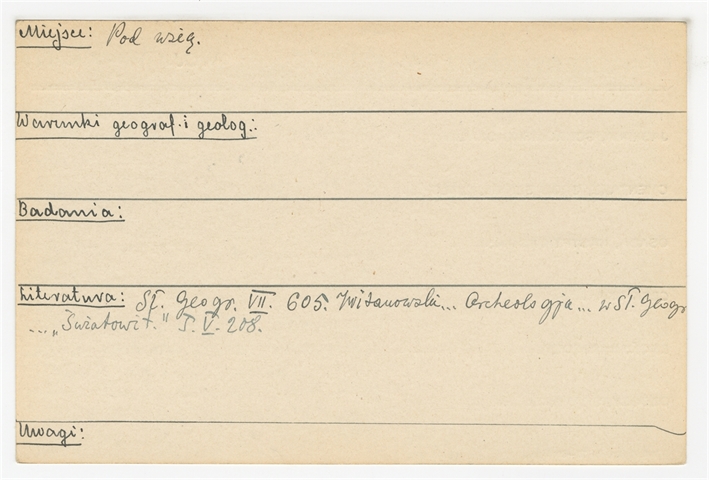 Miejsce: Pod wsią.
Warunki geograf. i geolog.:
Badania:
Literatura: Sł. Geogr. VII. 605. Witanowski... Archeologja... w Sł. Geogr
... "Światowit." T. V. 208.
Uwagi: